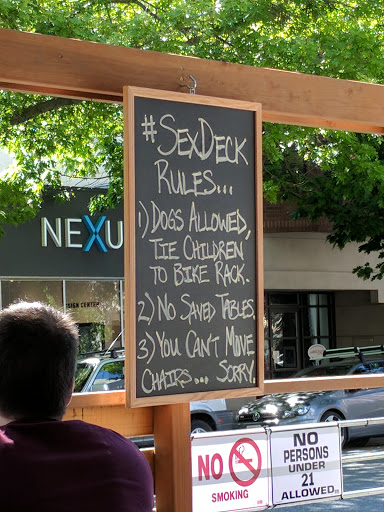 #SEXDECK
RULES...
1) DOGS ALLOWED,
TIE CHILDREN
TO BIKE RACK.
2) NO SAVED TABLES.
3) YOU CANT MOVE
CHAIRS... SORRY.
NEXU
SIGN CENTER
NO
SMOKING
NO
PERSONS
UNDER
21
ALLOWED